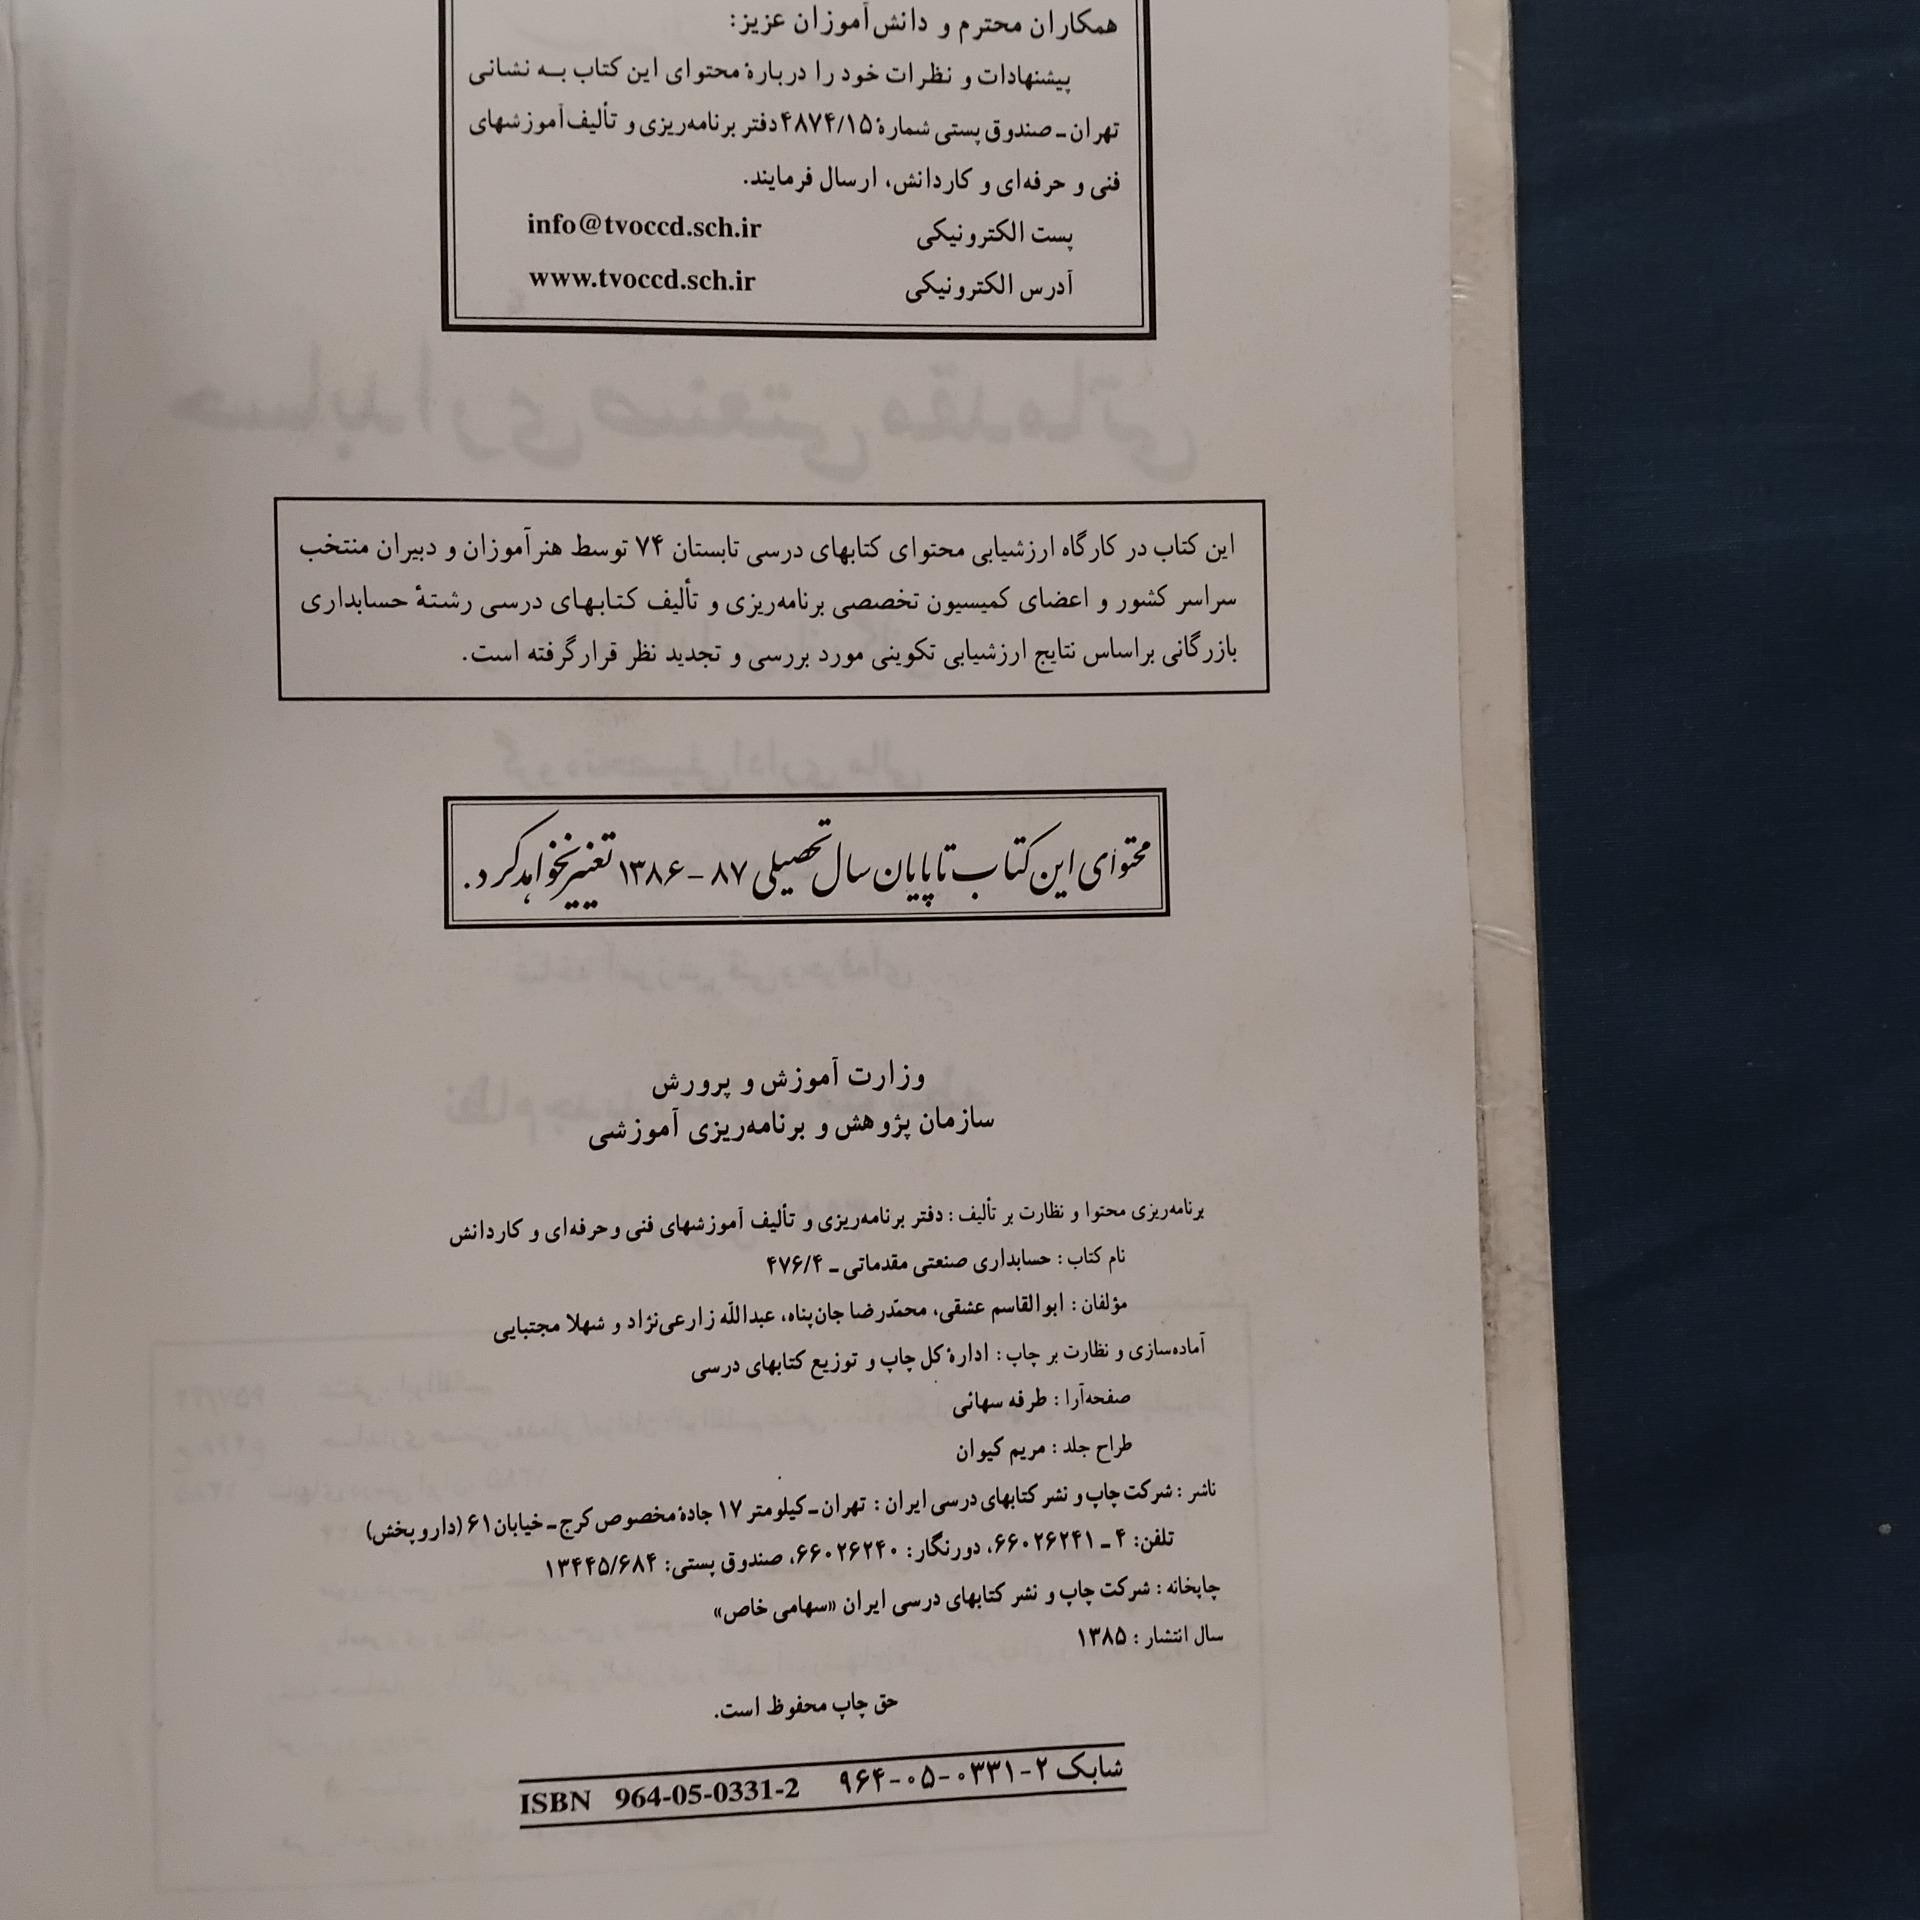 همکاران محترم و دانش‌آموزان عزیز:
پیشنهادات و نظرات خود را دربارهٔ محتوای این کتاب به نشانی
تهران ـ صندوق پستی شمارهٔ ۴۸۷۴/۱۵ دفتر برنامه‌ریزی و تألیف آموزشهای
فنی و حرفه‌ای و کاردانش، ارسال فرمایند.
پست الکترونیکی info@tvoccd.sch.ir
آدرس الکترونیکی www.tvoccd.sch.ir
این کتاب در کارگاه ارزشیابی محتوای کتابهای درسی تابستان ۷۴ توسط هنرآموزان و دبیران منتخب
سراسر کشور و اعضای کمیسیون تخصصی برنامه‌ریزی و تألیف کتابهای درسی رشتهٔ حسابداری
بازرگانی براساس نتایج ارزشیابی تکوینی مورد بررسی و تجدید نظر قرارگرفته است.
محتوای این کتاب تا پایان سال تحصیلی ۸۷ – ۱۳۸۶ تغییر نخواهد کرد.
وزارت آموزش و پرورش
سازمان پژوهش و برنامه‌ریزی آموزشی
برنامه‌ریزی محتوا و نظارت بر تألیف : دفتر برنامه‌ریزی و تألیف آموزشهای فنی و حرفه‌ای و کاردانش
نام کتاب : حسابداری صنعتی مقدماتی ـ ۴۷۶/۴
مؤلفان : ابوالقاسم عشقی، محمّدرضا جان‌پناه، عبداللّه زارعی‌نژاد و شهلا مجتبایی
آماده‌سازی و نظارت بر چاپ : ادارهٔ کل چاپ و توزیع کتابهای درسی
صفحه‌آرا : طرفه سهائی
طراح جلد : مریم کیوان
ناشر : شرکت چاپ و نشر کتابهای درسی ایران : تهران ـ کیلومتر ۱۷ جادهٔ مخصوص کرج ـ خیابان ۶۱ (داروپخش)
تلفن: ۴ ـ ۶۶۰۲۶۲۴۱، دورنگار: ۶۶۰۲۶۲۴۰، صندوق پستی: ۱۳۴۴۵/۶۸۴
چاپخانه : شرکت چاپ و نشر کتابهای درسی ایران «سهامی خاص»
سال انتشار : ۱۳۸۵
حق چاپ محفوظ است.
شابک ۲-۰۳۳۱-۰۵-۹۶۴ ISBN 964-05-0331-2